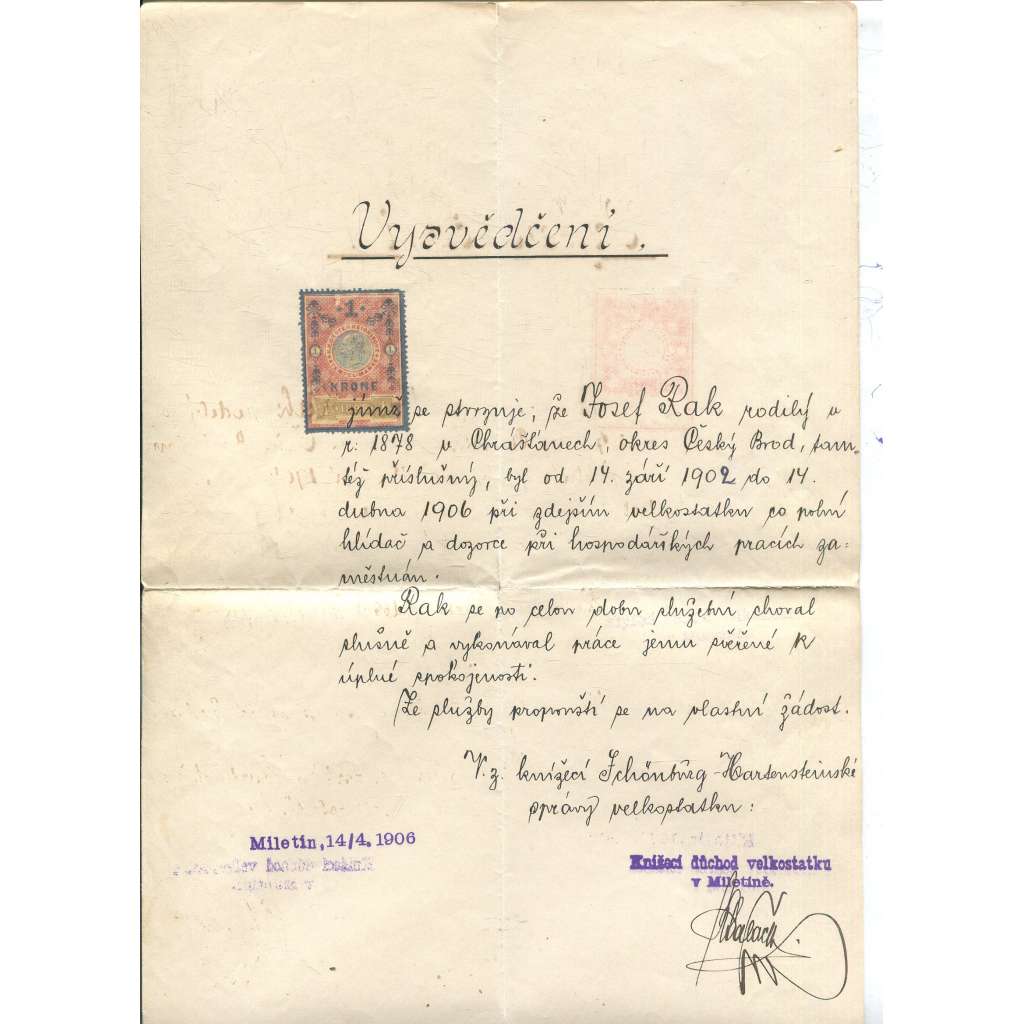 Vysvědčení.
1
KRONE
jímž se stvrzuje, že Josef Rak rodilý v
r. 1878 v Chrášťanech, okres Český Brod, tam-
též příslušný, byl od 14. září 1902 do 14.
dubna 1906 při zdejším velkostatku co polní
hlídač a dozorce při hospodářských pracích za=
městnán.
Rak se po celou dobu služební choval
slušně a vykonával práce jemu svěřené k
úplné spokojenosti.
Ze služby propouští se na vlastní žádost.
V. z. knížecí Schönburg-Hartensteinské
správy velkostatku:
Miletin, 14/4. 1906
Knížecí důchod velkostatku
v Miletíně.